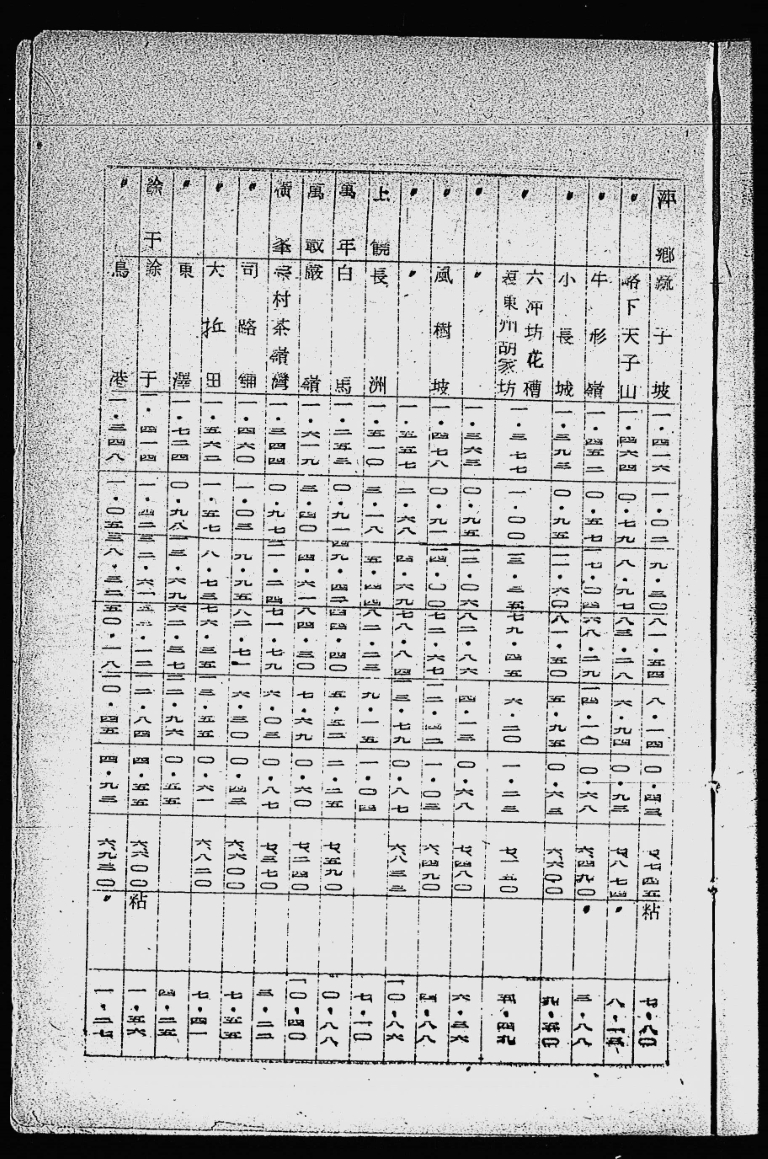 萍鄉 疏子坡 一·四一六 一·〇二 九·三〇 八一·五四 八·一四 〇·四三 七七四五 粘 七·八〇
〃 略下天子山 一·四六四 〇·七九 八·九七 八三·二八 六·九四 〇·九三 七八七四 〃
〃 牛形嶺 一·四五二 〇·五七 一七·〇四 六八·二九 一四·一〇 〇·六八 六四九〇 〃 三·八八
〃 小長城 一·三九三 〇·九五 一一·六〇 八一·五〇 五·九五 〇·六三 六六〇〇 九·五〇
〃 六沖坊花槽 東州胡家坊 一·三七七 一·〇〇 三·三五 七九·四五 六·二〇 一·二三 七一五〇 五·四九
〃 〃 一·三六三 〇·九五 一二·〇六 八二·八六 四·一三 〇·六八 七四八〇 六·三六
〃 風樹坡 一·四七八 〇·九一 一四·〇〇 七二·六七 一二·四二 一·〇三 六四九〇 四·八八
〃 〃 一·五五七 二·六八 四·六九 七八·八四 一三·七九 〇·八七 六八三三 一〇·八六
上饒 長洲 一·五一〇 三·一八 五·四四 八二·二三 九·一五 一·〇四 七·一〇
萬年 白馬 一·二五三 〇·九一 四九·四二 四四·四〇 五·五二 二·二五 七五九〇 一〇·八八
萬載 嚴嶺 一·六一九 三·四〇 四·六一 八四·三〇 七·六九 〇·六〇 七二四〇 一〇·四〇
橫峯 村茶嶺灣 一·三四四 〇·九七 二一·二四 七一·七九 六·〇三 〇·八七 七三七〇 三·二二
〃 司路鋪 一·四六〇 一·〇三 九·九五 八二·七一 六·三〇 〇·四三 六六〇〇 七·五五
〃 大坵田 一·五六二 一·五七 八·七三 七六·三五 一三·五五 〇·六一 六八二〇 七·四一
〃 東澤 一·七二四 〇·九八 一三·六九 六二·三七 二二·九六 〇·五五 四·二五
餘干 餘干 一·四一四 一·四二 三二·六一 一二·八四 四·五五 六六〇〇 粘 一·五六
〃 鳥港 一·三四八 一·〇五 三八·三二 五〇·一八 一〇·四五 四·九三 六九三〇 〃 一·二七